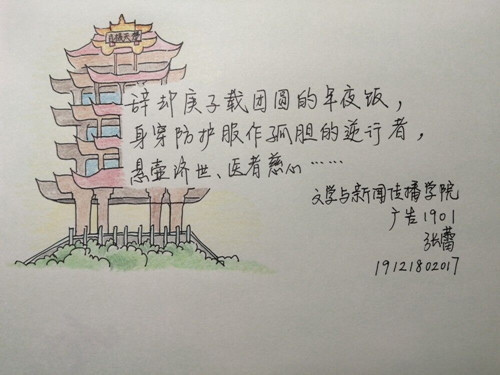 辞却庚子载团圆的年夜饭，
身穿防护服作孤胆的逆行者，
悬壶济世、医者慈心……
文学与新闻传播学院
广告1901
张蕾
19121802017